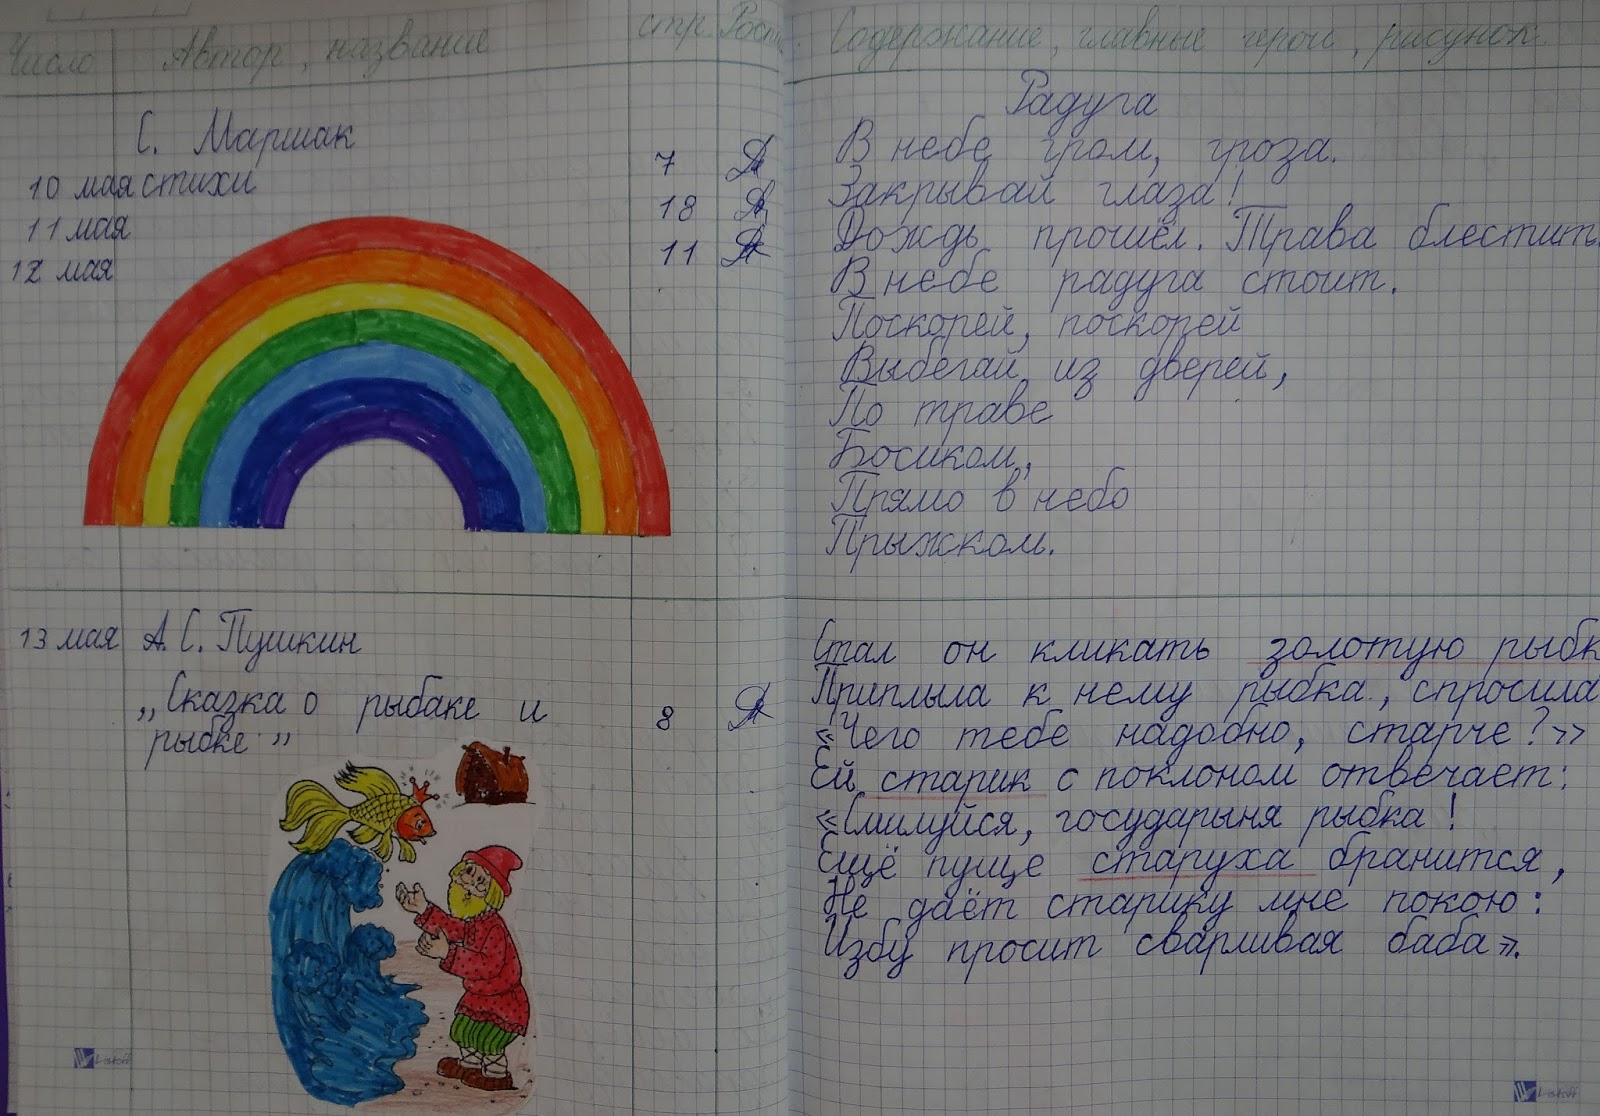 Число Автор, название стр. Содержание, главные герои, рисунок
С. Маршак
10 мая стихи 7
11 мая 18
12 мая 11
Радуга
В небе гром, гроза.
Закрывай глаза!
Дождь прошёл. Трава блестит.
В небе радуга стоит.
Поскорей, поскорей
Выбегай из дверей,
По траве
Босиком,
Прямо в небо
Прыжком.
13 мая А. С. Пушкин
„Сказка о рыбаке и 8
рыбке"
Стал он кликать золотую рыбк
Приплыла к нему рыбка, спросила
«Чего тебе надобно, старче?»
Ей старик с поклоном отвечает:
«Смилуйся, государыня рыбка!
Ещё пуще старуха бранится,
Не даёт старику мне покою:
Избу просит сварливая баба».